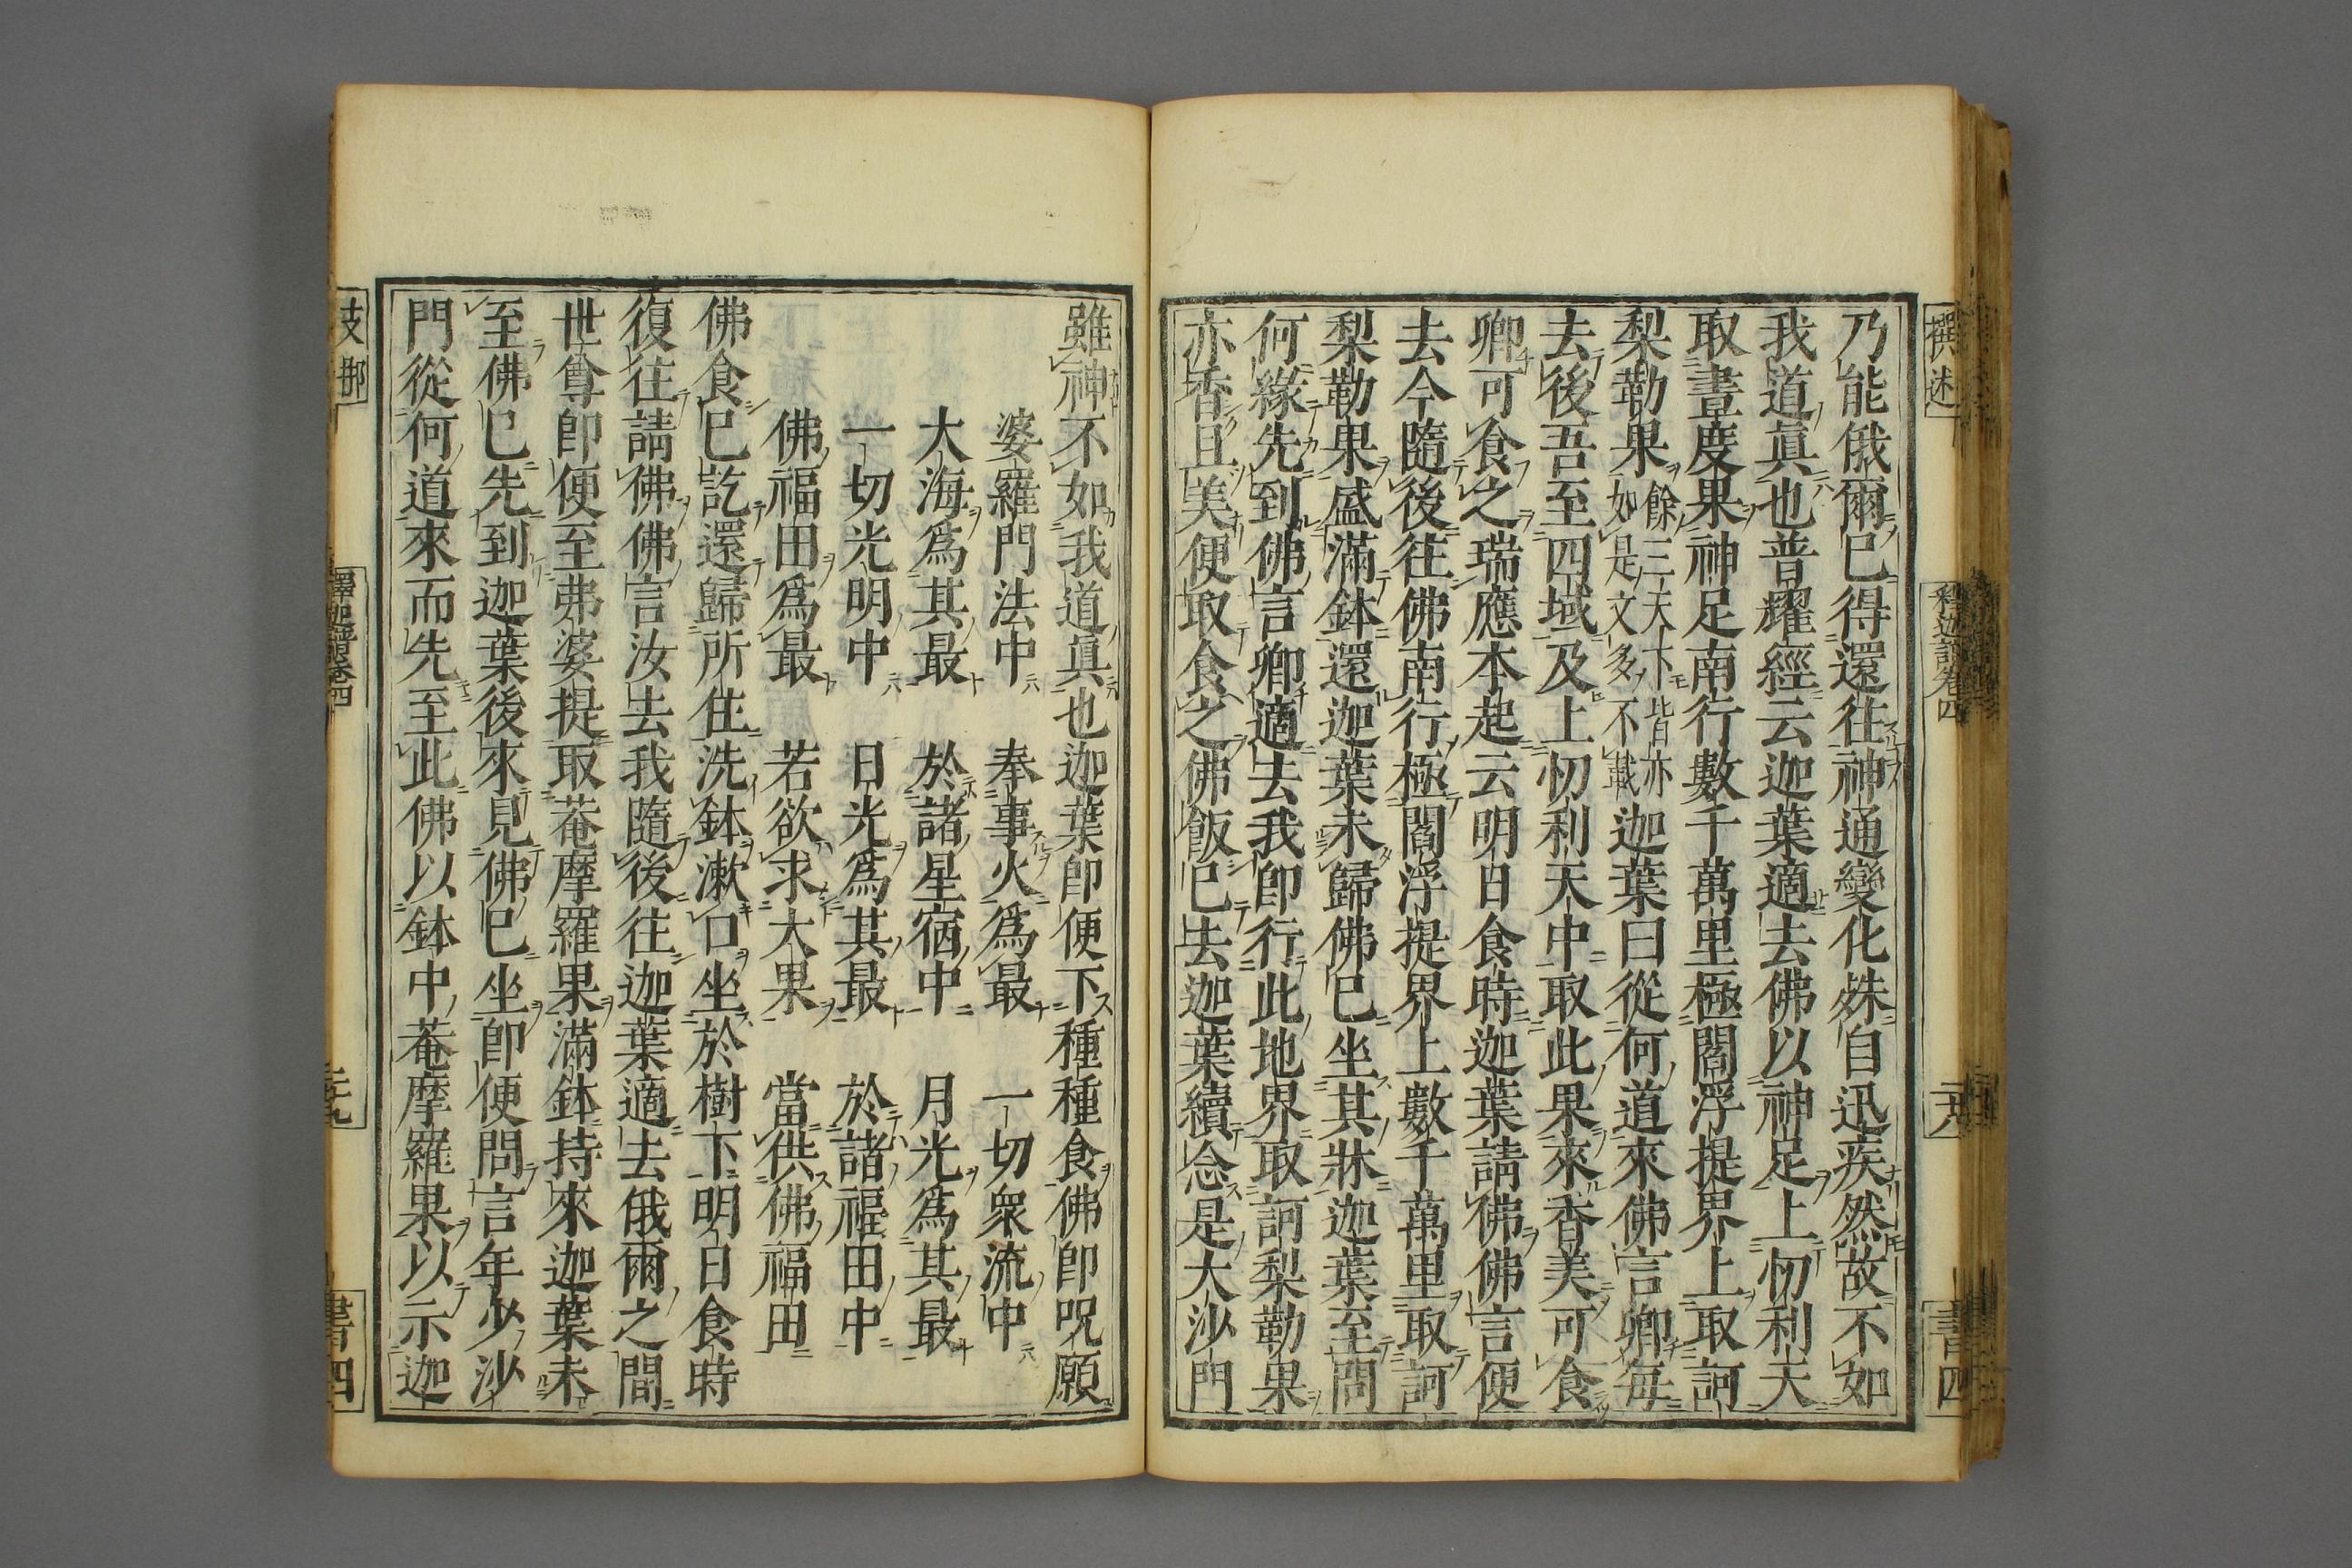 撰述
釋迦譜卷四
書四
乃能俄爾已得還往神通變化殊自迅疾然故不如
我道眞也普耀經云迦葉適去佛以神足上忉利天
取晝度果神足南行數千萬里極閻浮提界上取訶
梨勒果餘三天下皆亦如是文多不載迦葉曰從何道來佛言卿每
去後吾至四域及上忉利天中取此果來香美可食
卿可食之瑞應本起云明日食時迦葉請佛佛言便
去今隨後往佛南行極閻浮提界上數千萬里取訶
梨勒果盛滿鉢還迦葉未歸佛已坐其牀迦葉至問
何緣先到佛言卿適去我即行此地界取訶梨勒果
亦香且美便取食之佛飯已去迦葉續念是大沙門
雖神不如我道眞也迦葉即便下種種食佛即呪願
婆羅門法中　奉事火爲最　一切衆流中
大海爲其最　於諸星宿中　月光爲其最
一切光明中　日光爲其最　於諸福田中
佛福田爲最　若欲求大果　當供佛福田
佛食已訖還歸所住洗鉢漱口坐於樹下明日食時
復往請佛佛言汝去我隨後往迦葉適去俄爾之間
世尊即便至弗婆提取菴摩羅果滿鉢持來迦葉未
至佛已先到迦葉後來見佛已坐即便問言年少沙
門從何道來而先至此佛以鉢中菴摩羅果以示迦
支那
釋迦譜卷四
書四